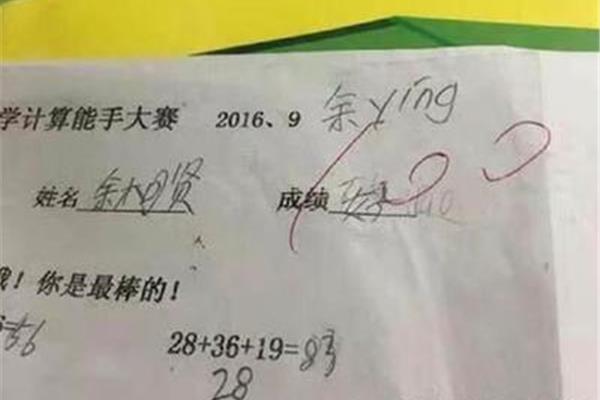 学计算能手大赛 2016、9 余ying
姓名 余相贤 成绩 100
我！你是最棒的！
=56 28+36+19=83
28